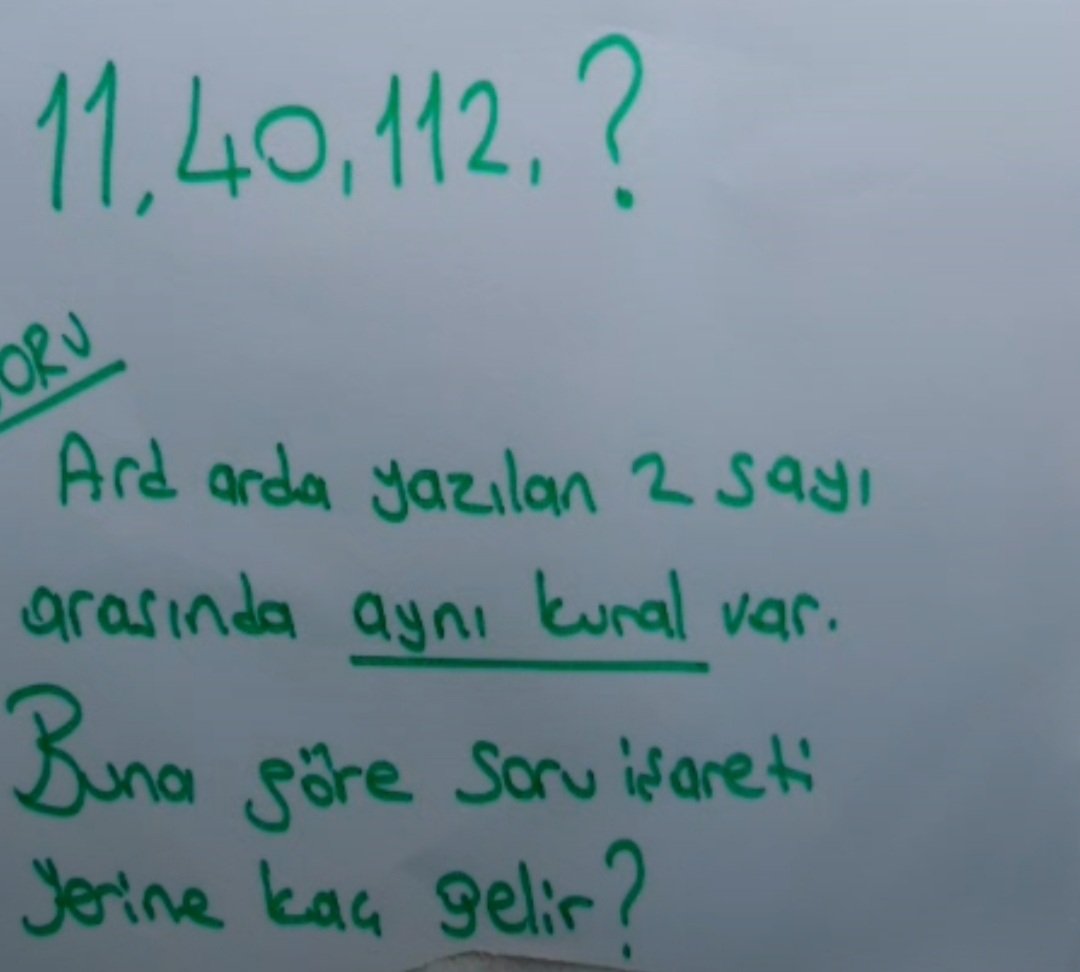 11, 40, 112, ?
ORU
Ard arda yazılan 2 sayı
arasında aynı kural var.
Buna göre soru işareti
yerine kaç gelir?